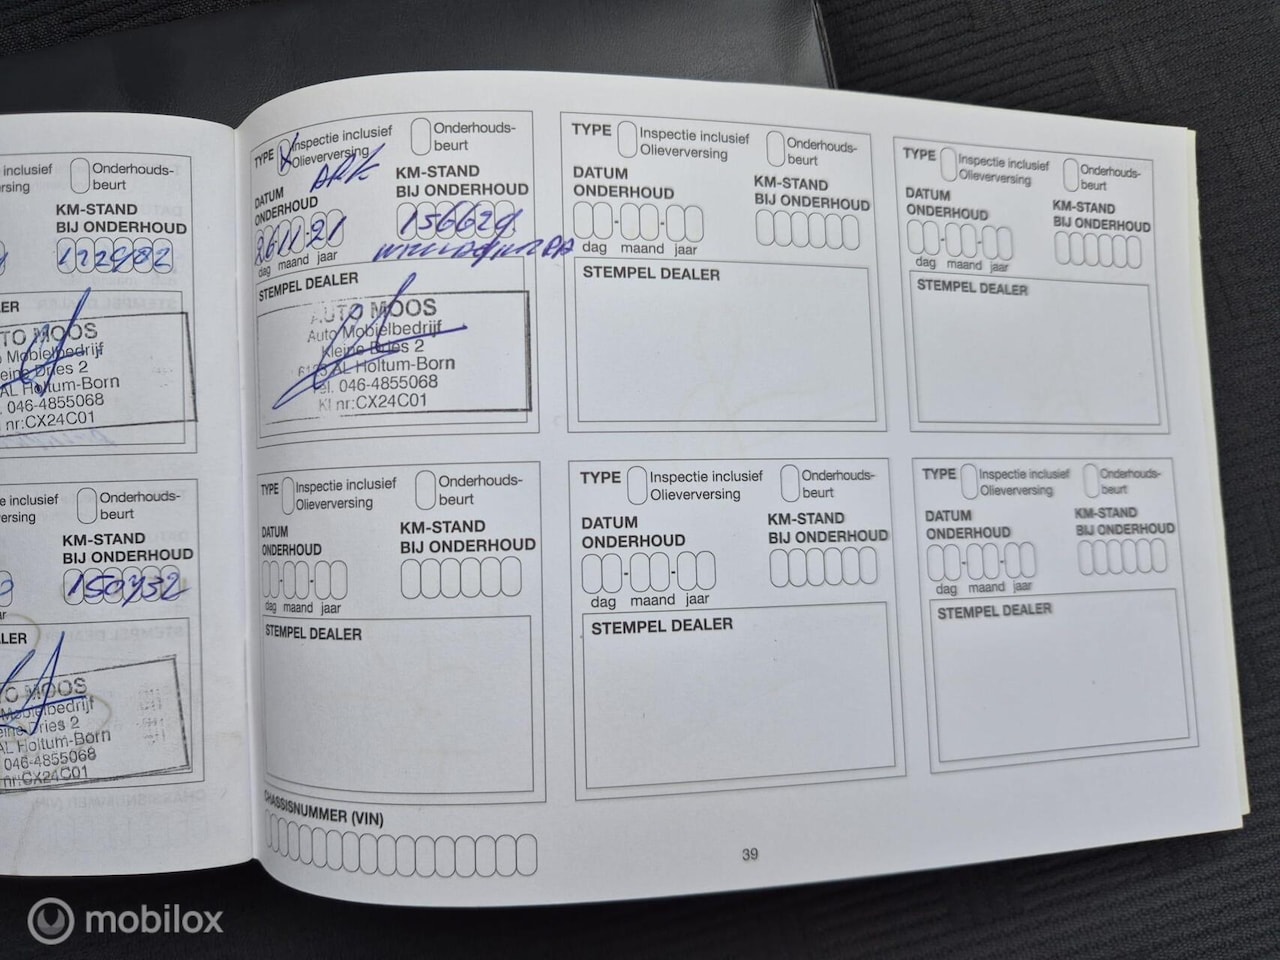 Onderhouds-
beurt
KM-STAND
BIJ ONDERHOUD
Mobielbedrijf
Dries 2
AL Holtum-Born
046-4855068
nr:CX24C01
Onderhouds-
beurt
KM-STAND
BIJ ONDERHOUD
150732
MOOS
Mobielbedrijf
Dries 2
AL Holtum-Born
046-4855068
nr:CX24C01
TYPE X Inspectie inclusief
Olieverversing
Onderhouds-
beurt
APK
DATUM
ONDERHOUD
KM-STAND
BIJ ONDERHOUD
26 11 21
dag maand jaar
STEMPEL DEALER
AUTO MOOS
Auto Mobielbedrijf
Kleine Dries 2
AL Holtum-Born
Tel. 046-4855068
KI nr:CX24C01
TYPE Inspectie inclusief
Olieverversing
Onderhouds-
beurt
DATUM
ONDERHOUD
KM-STAND
BIJ ONDERHOUD
dag maand jaar
STEMPEL DEALER
TYPE Inspectie inclusief
Olieverversing
Onderhouds-
beurt
DATUM
ONDERHOUD
KM-STAND
BIJ ONDERHOUD
dag maand jaar
STEMPEL DEALER
TYPE Inspectie inclusief
Olieverversing
Onderhouds-
beurt
DATUM
ONDERHOUD
KM-STAND
BIJ ONDERHOUD
dag maand jaar
STEMPEL DEALER
TYPE Inspectie inclusief
Olieverversing
Onderhouds-
beurt
DATUM
ONDERHOUD
KM-STAND
BIJ ONDERHOUD
dag maand jaar
STEMPEL DEALER
TYPE Inspectie inclusief
Olieverversing
Onderhouds-
beurt
DATUM
ONDERHOUD
KM-STAND
BIJ ONDERHOUD
dag maand jaar
STEMPEL DEALER
CHASSISNUMMER (VIN)
39
mobilox